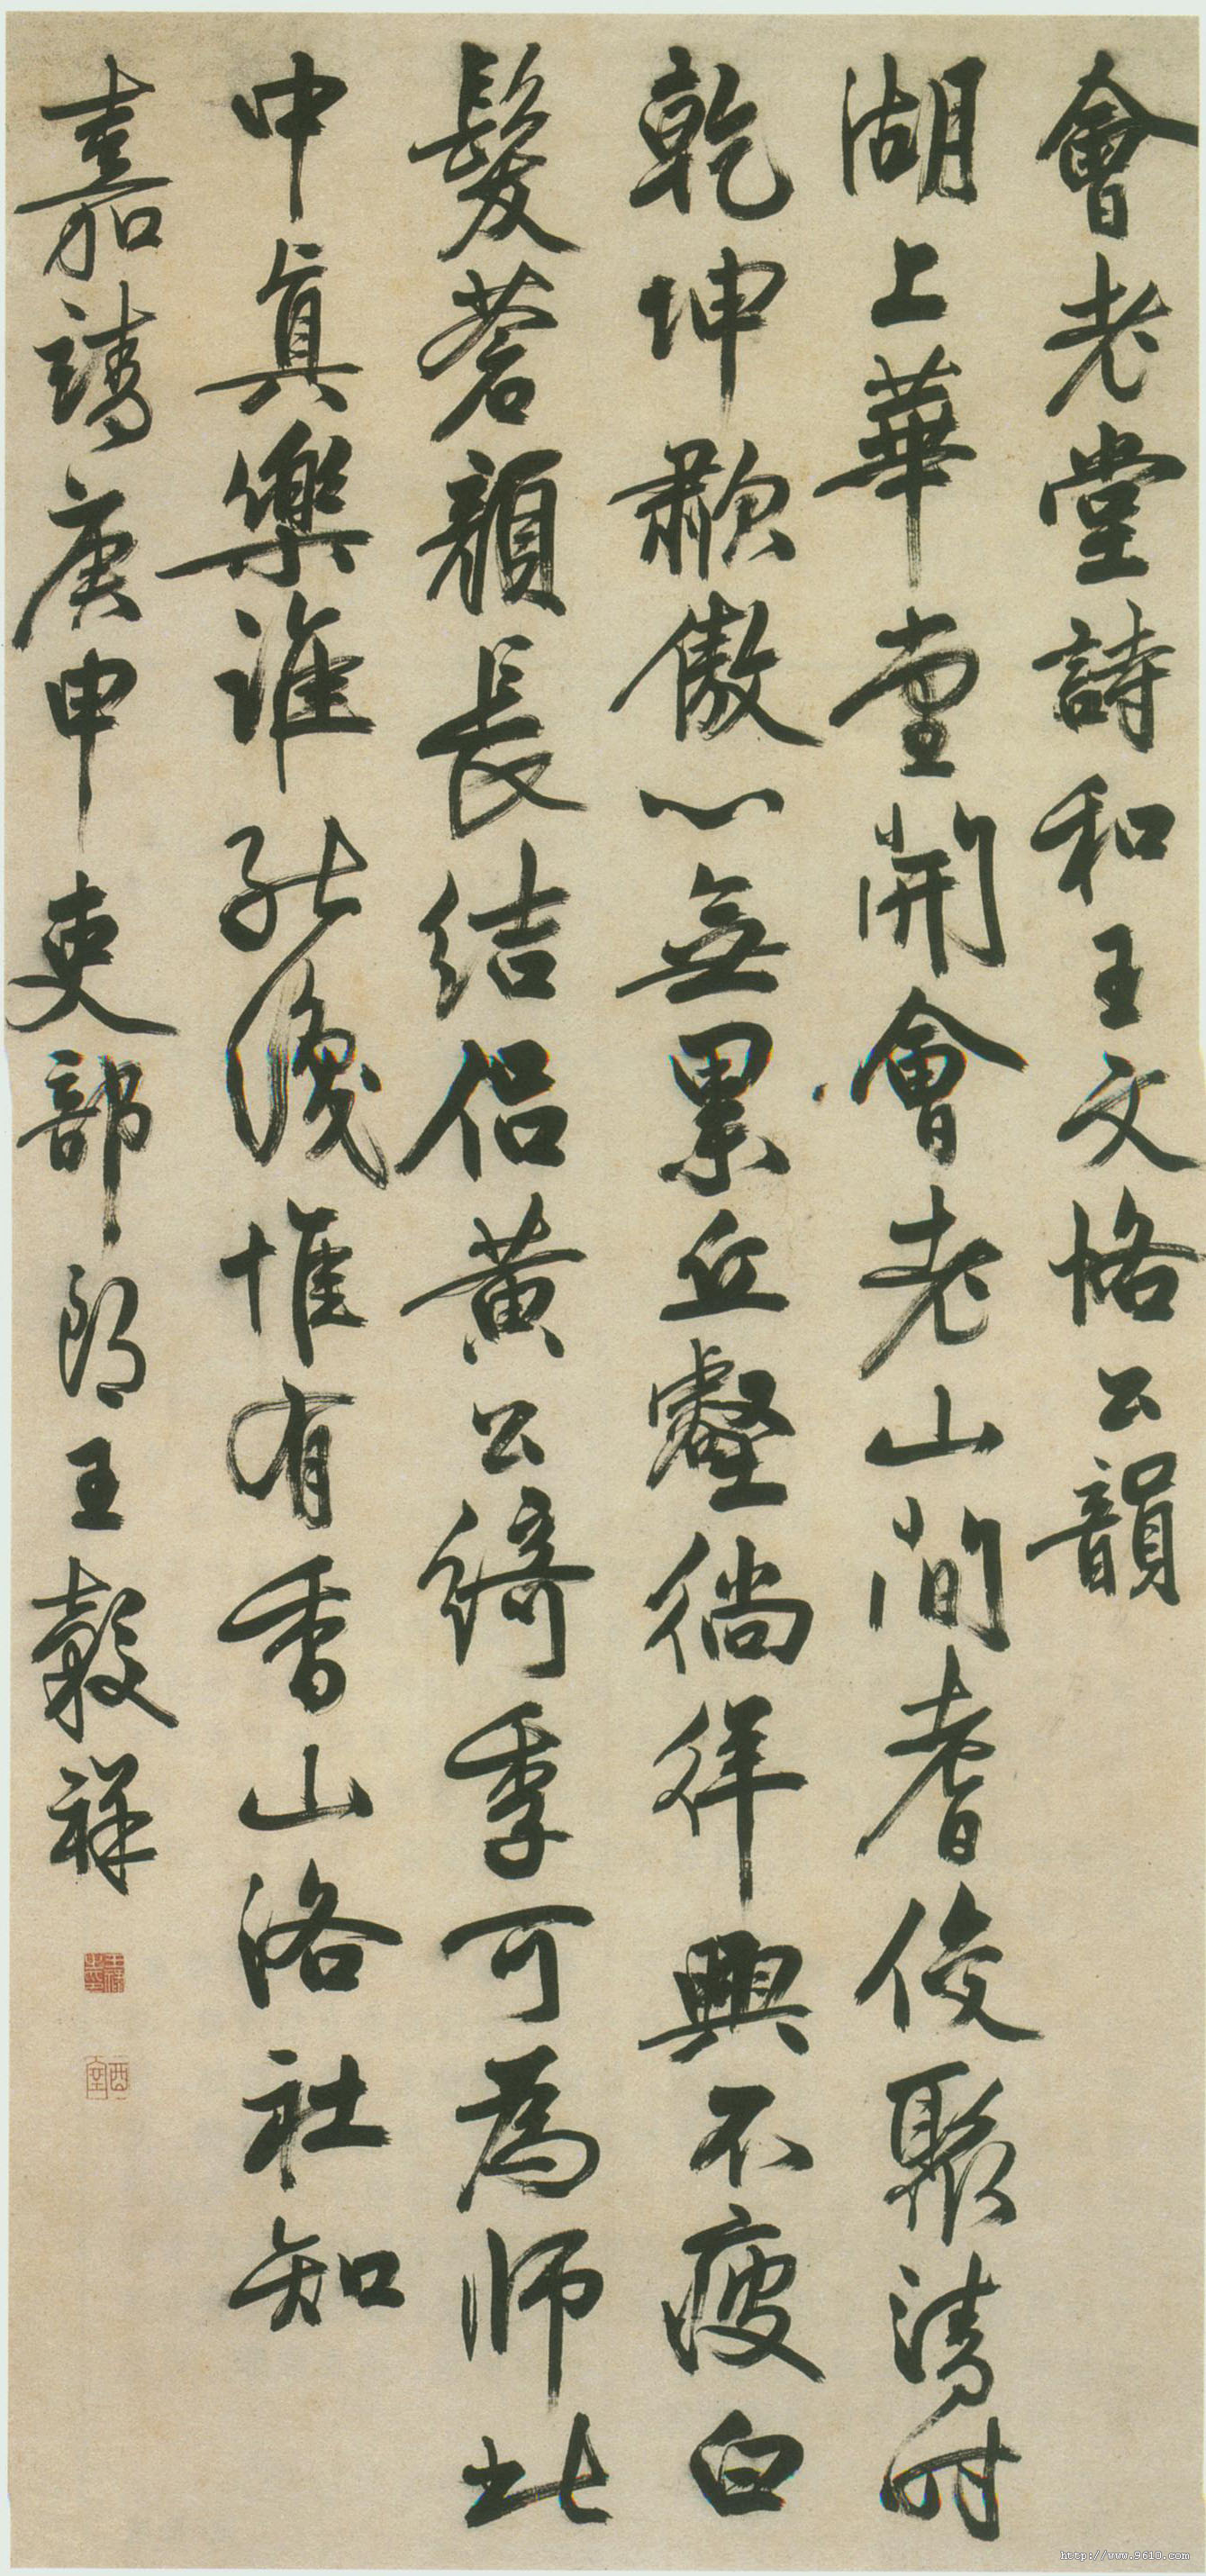 會老堂詩和王文恪公韻
湖上華堂開會老山間耆俊聚清時
乾坤歌傲心無累丘壑徜徉興不疲白
髮蒼顏長結侶黃公綺季可為師此
中真樂誰能識惟有香山洛社知
嘉靖庚申吏部郎王穀祥
酉室
http://www.9610.com